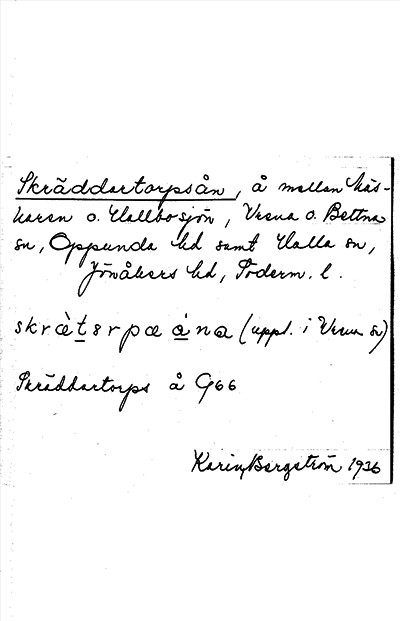 Skräddartorpsån, å mellan Näs-
naren o. Hallbosjön, Vrena o. Bettna
sn, Oppunda hd samt Halla sn,
Jönåkers hd, Söderm. l.
skràtsrpæ àna (uppt. i Vrena sn)
Skräddartorps å G66
Karin Bergström 1936